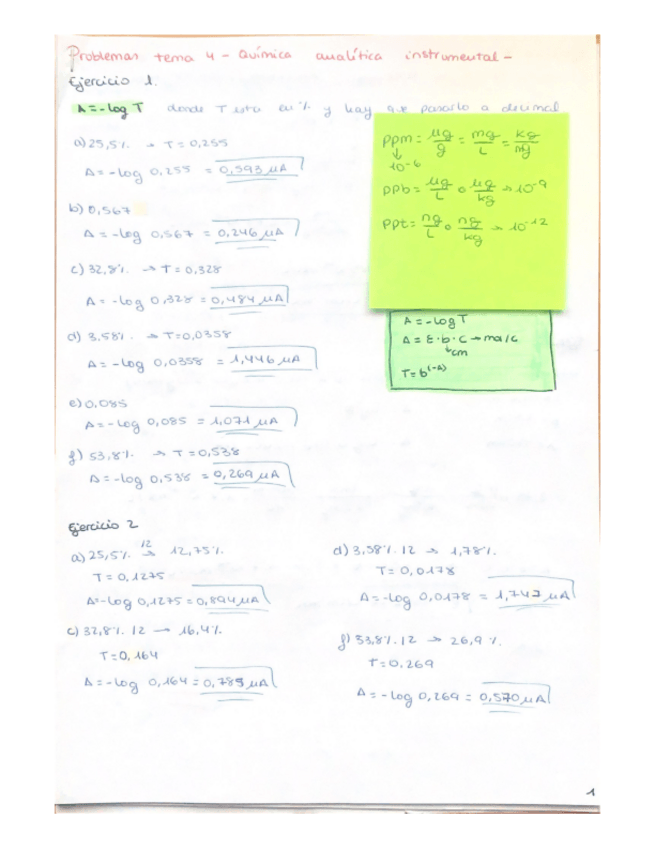 Problemas tema 4 - Química analítica instrumental -
Ejercicio 1.
A = -log T donde T está en % y hay que pasarlo a decimal
a) 25,5% → T = 0,255
A = -log 0,255 = 0,593 µA
b) 0,567
A = -log 0,567 = 0,246 µA
c) 32,8% → T = 0,328
A = -log 0,328 = 0,484 µA
d) 3,58% → T = 0,0358
A = -log 0,0358 = 1,446 µA
e) 0,085
A = -log 0,085 = 1,071 µA
f) 53,8% → T = 0,538
A = -log 0,538 = 0,269 µA
ppm = µg/g = mg/L = kg/mg
↓
10-6
ppb = µg/L o µg/kg → 10-9
ppt = ng/L o ng/kg → 10-12
A = -log T
A = ε·b·c → mol/L
↓cm
T = b(-A)
Ejercicio 2
a) 25,5% /2 → 12,75%.
T = 0,1275
A = -log 0,1275 = 0,894 µA
c) 32,8% /2 → 16,4%
T = 0,164
A = -log 0,164 = 0,785 µA
d) 3,58% /2 → 1,78%
T = 0,0178
A = -log 0,0178 = 1,747 µA
f) 53,8% /2 → 26,9%.
T = 0,269
A = -log 0,269 = 0,570 µA
1